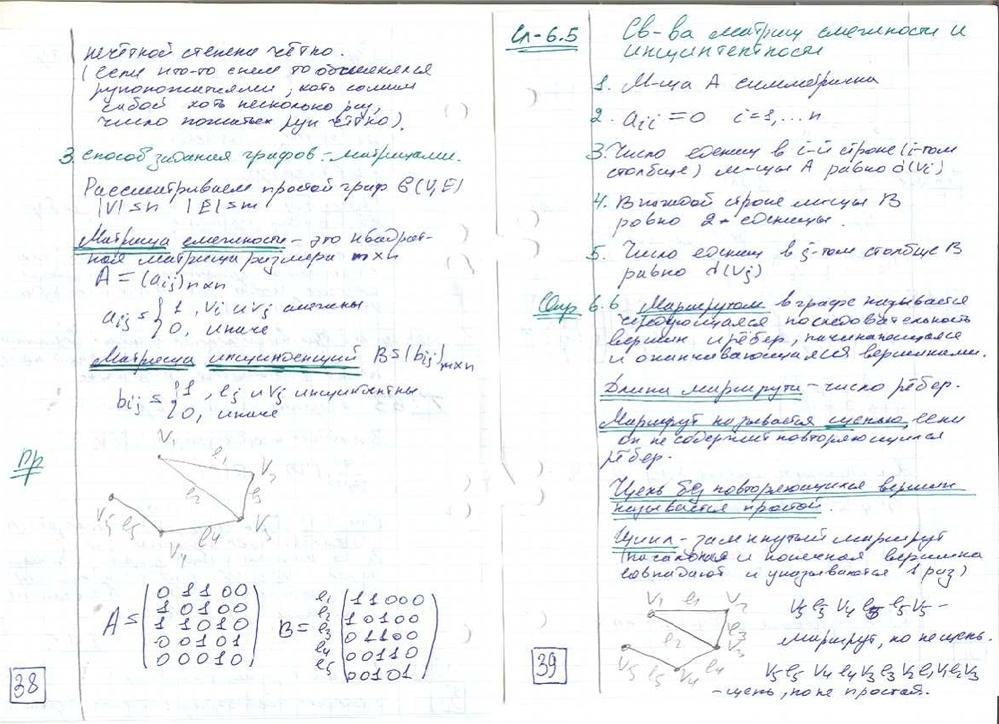 нечётной степени чётно.
(если кто-то с кем то обменялся
рукопожатиями, хоть с самим
собой хоть несколько раз,
число пожатых рук чётно).
3. способ задания графов – матрицами.
Рассматриваем простой граф G(V,E)
|V|=n |E|=m
Матрица смежности – это квадрат-
ная матрица размера n×n
A = (aij)n×n
aij = { 1, Vi и Vj смежны
0, иначе
Матрица инциденций B=(bij)m×n
bij = { 1, ej и Vj инцидентны
0, иначе
Пр
V1 e1 V2
e2 e3
V5 e5 V4 e4 V3
A = ( 0 1 1 0 0
1 0 1 0 0
1 1 0 1 0
0 0 1 0 1
0 0 0 1 0 )
B = e1 ( 1 1 0 0 0
e2 1 0 1 0 0
e3 0 1 1 0 0
e4 0 0 1 1 0
e5 0 0 1 0 1 )
38
Сл-6.5 Св-ва матриц смежности и
инцидентности
1. М-ца A симметрична
2. aii = 0 i=1,...n
3. Число единиц в i-й строке (i-том
столбце) м-цы A равно d(Vi)
4. В каждой строке м-цы B
ровно 2 единицы.
5. Число единиц в j-том столбце B
равно d(Vj)
Опр 6.6 Маршрутом в графе называется
чередующаяся последовательность
вершин и рёбер, начинающаяся
и оканчивающаяся вершинами.
Длина маршрута – число рёбер.
Маршрут называется цепью, если
он не содержит повторяющихся
рёбер.
Цепь без повторяющихся вершин
называется простой.
Цикл – замкнутый маршрут
(начальная и конечная вершина
совпадают и указываются 1 раз)
V1 e1 V2
e2 e3
V5 e5 V4 e4 V3
V5 e5 V4 e5 V5 –
маршрут, но не цепь.
V5 e5 V4 e4 V3 e3 V2 e1 V1 e2 V3
– цепь, но не простая.
39